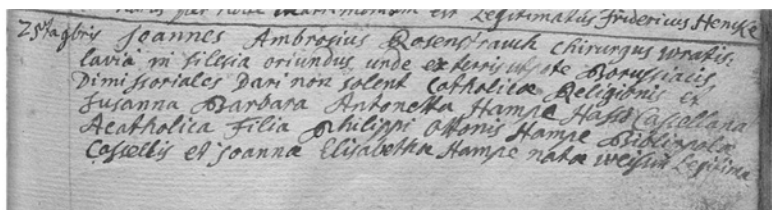 per matrimonium est Legitimatus Fridericus Hencke
25ta 9bris Joannes Ambrosius Rosenstrauch Chirurgus wratis:
lavia in silesia oriundus unde ex terris utpote Borussiacis
Dimissoriales Dari non solent Catholicæ Religionis et
Susanna Barbara Antonetta Hampe Hasso Cassellana
Acatholica Filia Philippi Ottonis Hampe Bibliopolæ
Cassellis et Joannæ Elisabethæ Hampe natæ Legitima